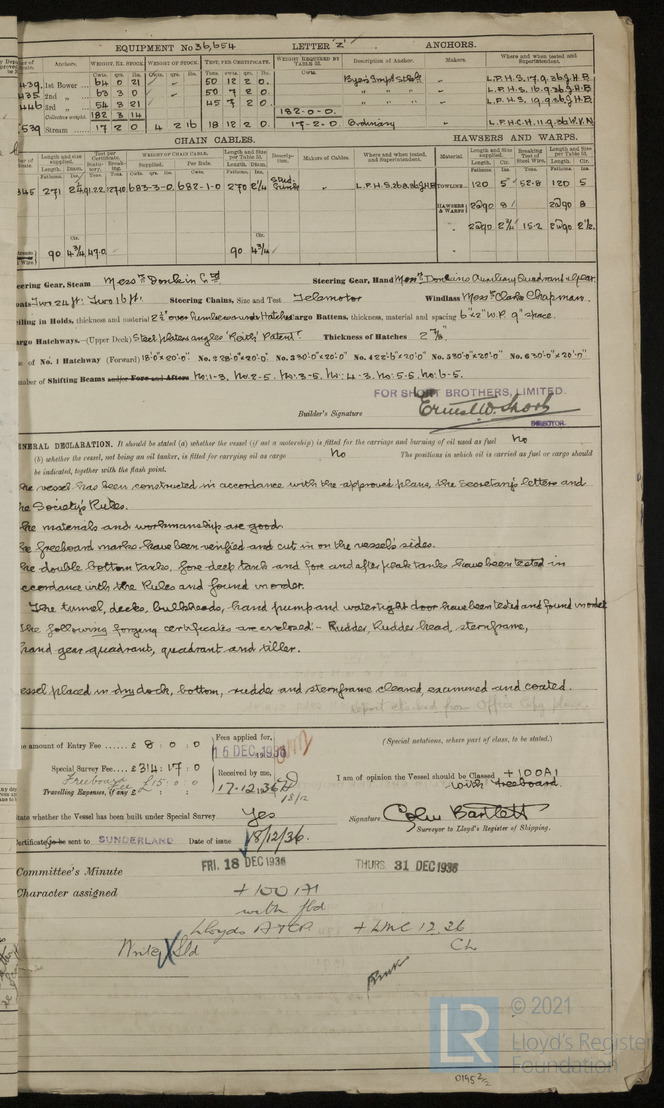 EQUIPMENT No 36,654 LETTER 'Z' ANCHORS.
Anchors. WEIGHT, EX. STOCK WEIGHT OF STOCK. TEST, PER CERTIFICATE. WEIGHT REQUIRED BY TABLE 53. Description of Anchor. Makers. Where and when tested and Superintendent.
Cwts. qrs. lbs. Cwts. qrs. lbs. Tons. cwts. qrs. lbs. Cwts.
439 1st Bower 64 0 21 50 12 2 0 L.P.H.S. 17.9.36 J.H.B.
435 2nd „ 63 3 0 50 7 2 0 L.P.H.S. 16.9.36 J.H.B.
446 3rd „ 54 3 21 45 7 2 0 L.P.H.S. 19.9.36 J.H.B.
Collective weight. 182 3 14 182-0-0
539 Stream 17 2 0 4 2 16 18 12 2 0 17-2-0 Ordinary L.P.H.C.H. 11.9.36 W.K.N.
CHAIN CABLES. HAWSERS AND WARPS.
Length and size supplied. Test per Certificate. WEIGHT OF CHAIN CABLE. Length and Size per Table 53. Description. Makers of Cables. Where and when tested, and Superintendent. Material Length and size supplied. Breaking Test of Steel Wire. Length and Size per Table 53.
Supplied. Per Rule.
345 271 2¼ 91.22 127.70 683-3-0 682-1-0 270 2¼ Stud Link TOWLINE 120 5" 52.8 120 5
HAWSERS & WARPS 2@90 8" 2@90 8
" 2@90 2¾" 15.2 2@90 2½
90 4¾ 47.0 90 4¾
Steering Gear, Steam Messrs Donkin & Co Ltd Steering Gear, Hand Messrs Donkins Auxiliary Quadrant & gear
Boats Two 24 ft. Two 16 ft. Steering Chains, Size and Test Telemotor Windlass Messrs Clarke Chapman.
Ceiling in Holds, thickness and material 2½" over timbers under Hatches Cargo Battens, thickness, material and spacing 6"x2" W.P. 9" space.
Cargo Hatchways.—(Upper Deck) Steel plates & angles 'Roith' Patent. Thickness of Hatches 2⅞"
Size of No. 1 Hatchway (Forward) 18'0"x20'0" No. 2 28'0"x20'0" No. 3 30'0"x20'0" No. 4 22'6"x20'0" No. 5 30'0"x20'0" No. 6 30'0"x20'0"
Number of Shifting Beams and/or Fore and Afters No:1-3. No:2-5. No:3-5. No:4-3. No:5-5. No:6-5.
FOR SHORT BROTHERS, LIMITED.
Builder's Signature Ernest W. Short
DIRECTOR.
GENERAL DECLARATION. It should be stated (a) whether the vessel (if not a motorship) is fitted for the carriage and burning of oil used as fuel No
(b) whether the vessel, not being an oil tanker, is fitted for carrying oil as cargo No The positions in which oil is carried as fuel or cargo should
be indicated, together with the flash point.
The vessel has been constructed in accordance with the approved plans, the Secretary's letters and
the Society's Rules.
The materials and workmanship are good.
The freeboard marks have been verified and cut in on the vessel's sides.
The double bottom tanks, fore deep tank and fore and after peak tanks have been tested in
accordance with the Rules and found in order.
The tunnel, decks, bulkheads, hand pump and watertight door have been tested and found in order
The following forging certificates are enclosed:- Rudder, Rudder head, sternframe,
hand gear quadrant, quadrant and tiller.
Vessel placed in dry dock, bottom, rudder and sternframe cleaned, examined and coated.
Report checked from Office Copy plans.
The amount of Entry Fee ...... £ 8 : 0 : 0 Fees applied for,
16 DEC 1936
(Special notations, where part of class, to be stated.)
Special Survey Fee.... £314 : 17 : 0 Received by me,
Freeboard Fee £15 : 0 : 0 17.12.1936
Travelling Expenses, if any £ : : 18/12
I am of opinion the Vessel should be Classed +100A1
with freeboard.
State whether the Vessel has been built under Special Survey Yes
Signature Colin Bartlett
Surveyor to Lloyd's Register of Shipping.
Certificate to be sent to SUNDERLAND Date of issue 18/12/36.
Committee's Minute FRI. 18 DEC 1936 THURS. 31 DEC 1936
Character assigned +100 A1
with fbd
Lloyds A&CP. + LMC 12.36
CL
Write Sld
© 2021
LR Lloyd's Register
Foundation
0195 2/2